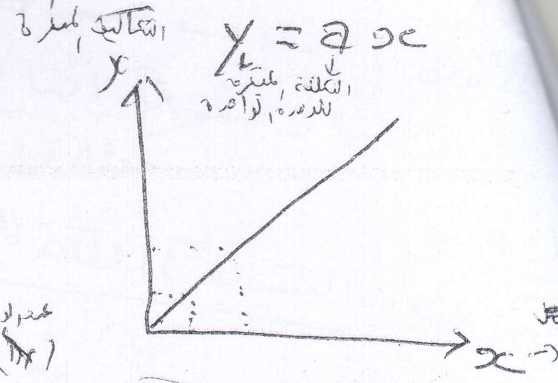 التكاليف المتغيرة
y = a x
التكلفة المتغيرة
للوحدة الواحدة
y
x